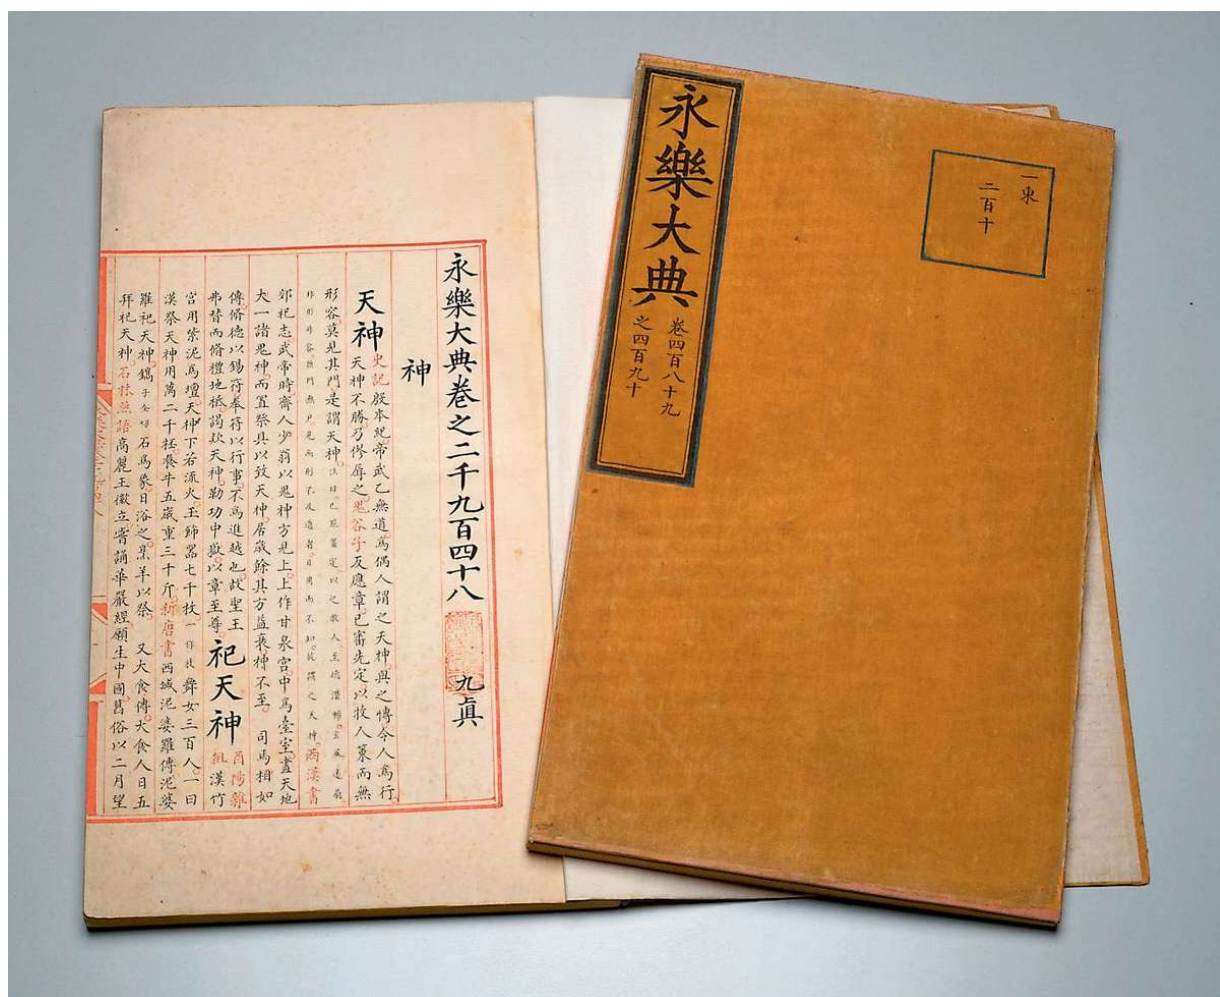 永樂大典卷之二千九百四十八
九真
神
天神
史記殷本紀帝武乙無道為偶人謂之天神與之博令人為行
天神不勝乃僇辱之鬼谷子反應章已審先定以牧人策而無
形容莫見其門是謂天神
西漢書
郊祀志武帝時齊人少翁以鬼神方見上上作甘泉宮中為臺室畫天地
大一諸鬼神而置祭具以致天神居歲餘其方益衰神不至 司馬相如
傳脩德以錫符奉符以行事不為進越也故聖王
弗替而脩禮地祗謁款天神勒功中嶽以章至尊
祀天神
酉陽雜
俎漢竹
宮用紫泥為壇天神下若流火玉飾器七千枚一作枝舞女三百人一曰
漢祭天神用萬二千杯養牛五歲重三千斤新唐書西域泥婆羅傳泥婆
羅祀天神鐫子全切石為象日浴之烹羊以祭 又大食傳大食人日五
拜祀天神石林燕語高麗王徽立嘗誦華嚴經願生中國舊俗以二月望
永樂大典
卷四百八十九
之四百九十
一東
二百十